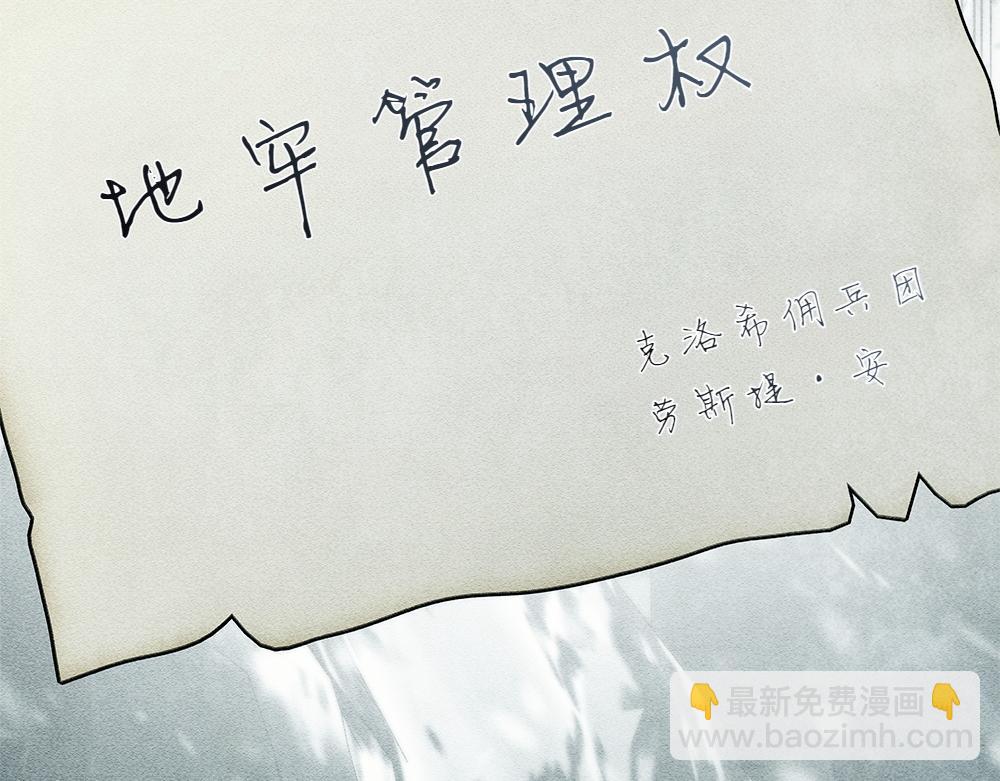 地牢管理权
克洛希佣兵团
劳斯提·安
👇最新免费漫画👇
www.baozimh.com